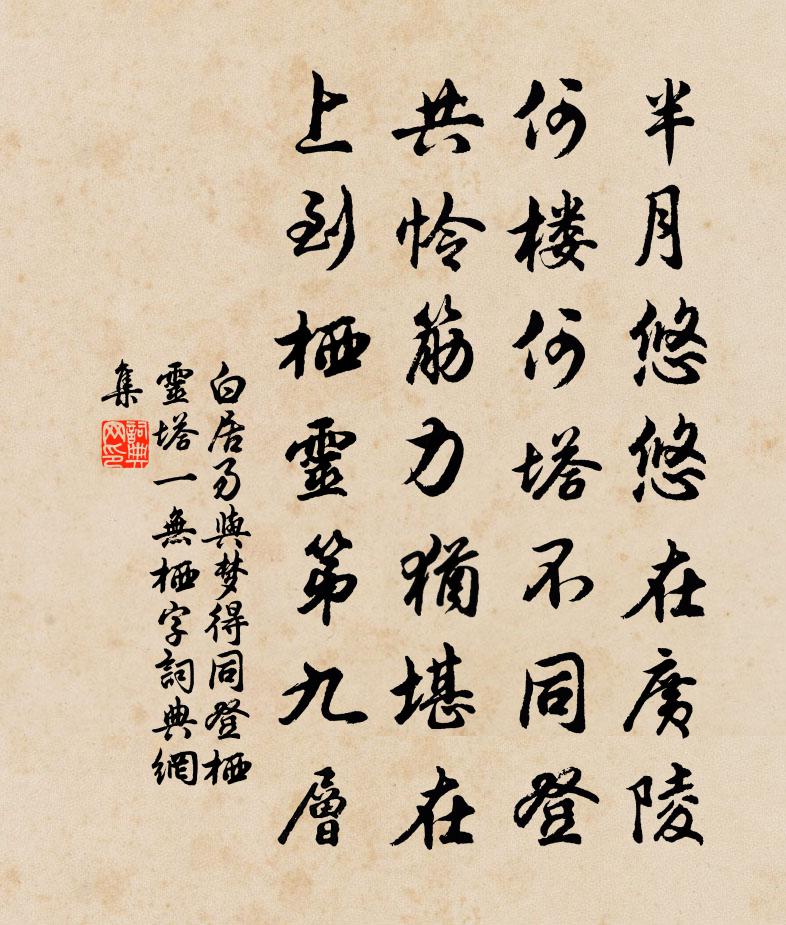 半月悠悠在廣陵
何楼何塔不同登
共怜筋力猶堪在
上到栖靈第九層
白居易與梦得同登栖
靈塔一無栖字詞典網
集
詞典网印